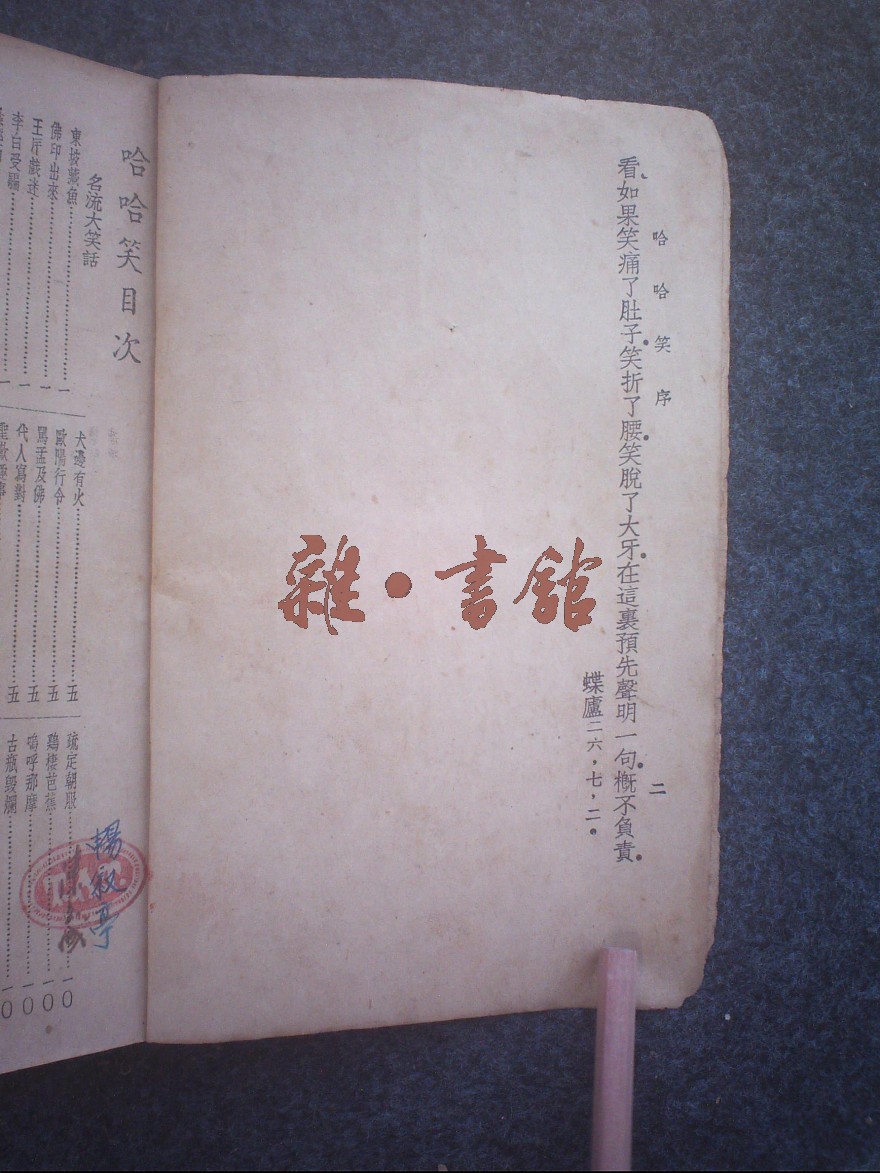 哈哈笑序
二
看、如果笑痛了肚子。笑折了腰。笑脫了大牙。在這裏預先聲明一句。概不負責。
蝶廬二六，七，二。
雜·書館
哈哈笑目次
名流大笑話
東坡藏魚……一
佛印出來……一
王庁戲迷……一
李白受騙……一
犬邊有火……五
歐陽行令……五
罵孟及佛……五
代人寫對……五
琉定朝服……一〇
鷄棲芭蕉……一〇
嗚呼那摩……一〇
古瓶毀爛……一〇